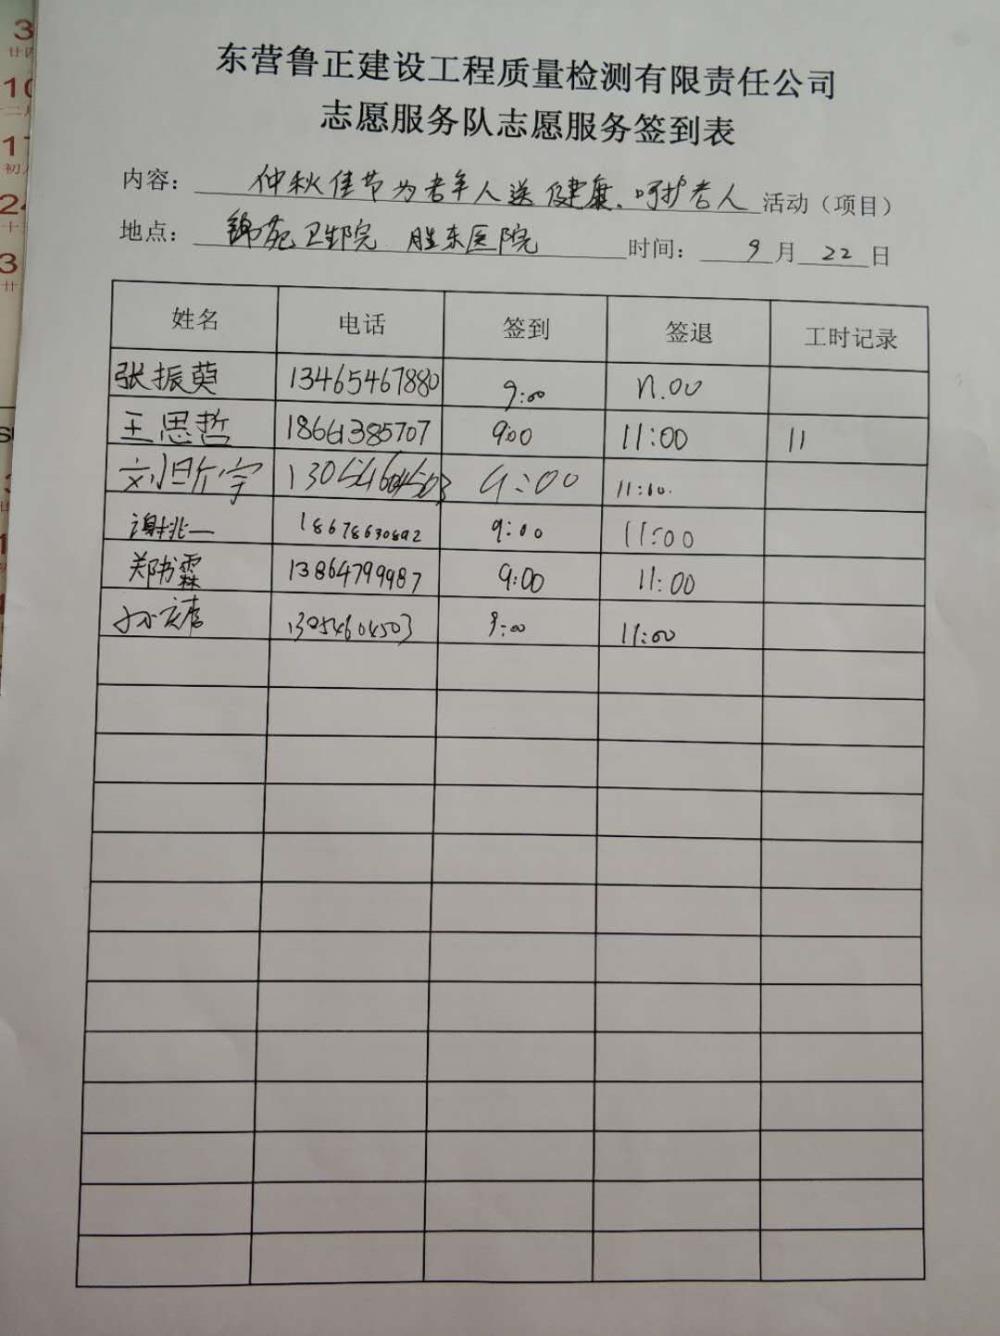 东营鲁正建设工程质量检测有限责任公司
志愿服务队志愿服务签到表
内容: 仲秋佳节为老年人送健康、呵护老人 活动（项目）
地点: 锦苑卫生院 胜东医院 时间: 9月22日
姓名 电话 签到 签退 工时记录
张振萸 13465467880 9:00 11.00
王思哲 18661385707 9:00 11:00 11
刘昕宇 13054604503 9:00 11:00.
谢桃一 18678630892 9:00 11:00
郑书霖 13864799987 9:00 11:00
孙 13054604503 9:00 11:00
3
廿四
10
17
3
廿